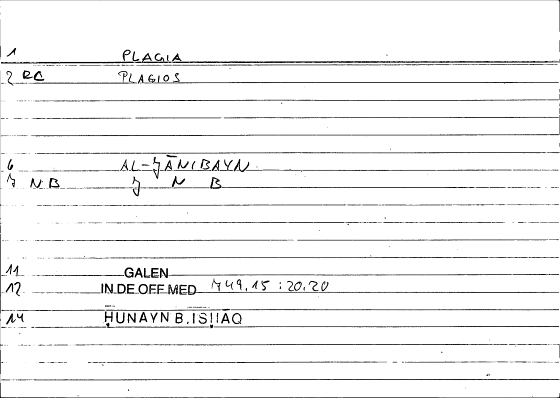 1 PLAGIA
2 RC PLAGIOS
6 AL-JĀNIBAYN
7 N B J N B
11 GALEN
12 IN DE OFF MED 749.15 : 20.20
14 ḤUNAYN B. ISḤĀQ